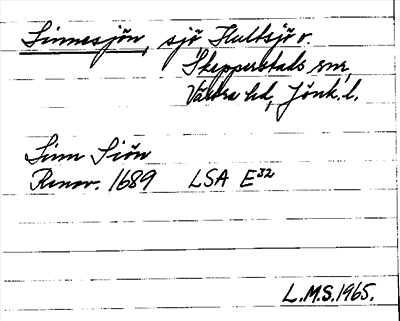 Linnesjön, sjö Hultsjö v.
Skepperstads snr,
Västra hd, Jönk. l.
Linn Siön
Renov. 1689 LSA E32
L.M.S. 1965.